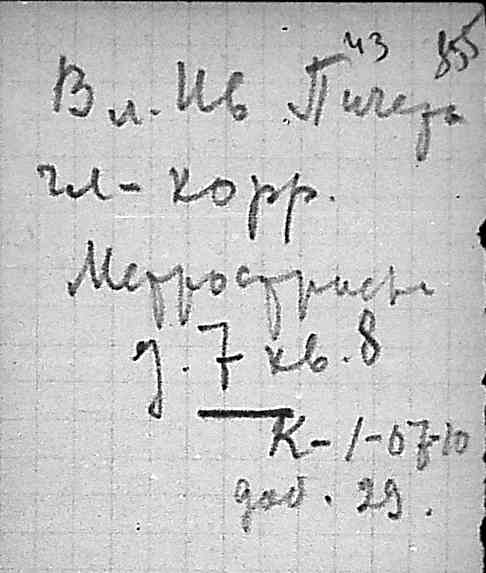 43 855
Вл. Ив Пичета
чл-корр.
Метростроевск
д. 7 кв. 8
К-1-07-10
доб. 29.